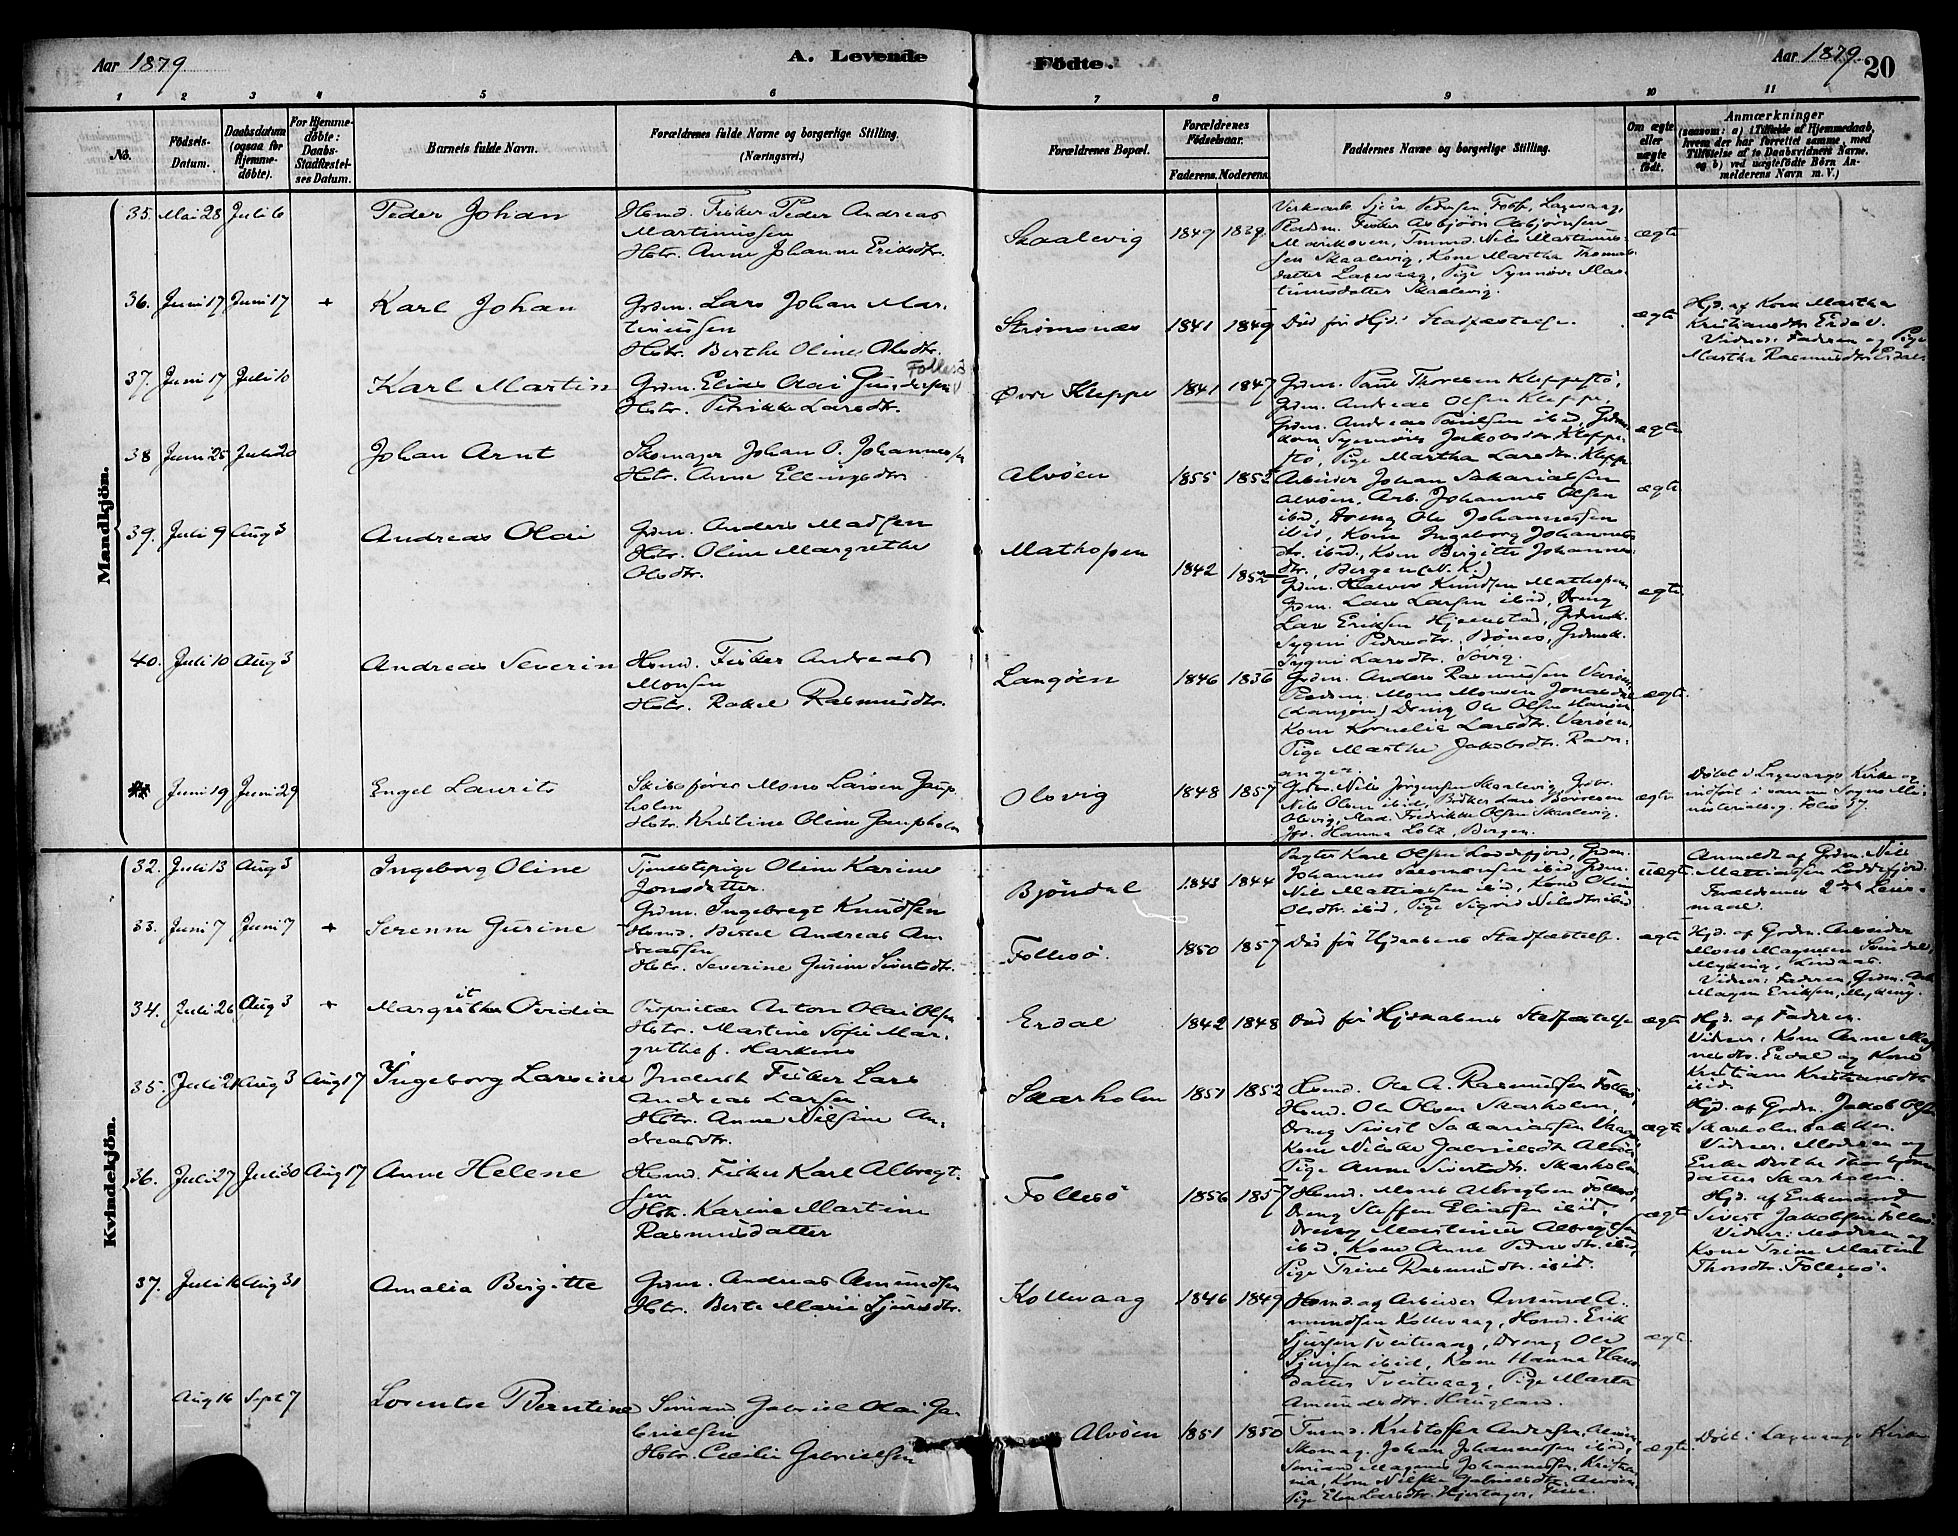 Aar 1879
A. Levende
Födte.
Aar 1879
20
1 2 3 4 5 6 7 8 9 10 11
No.
Födsels-
Datum.
Daabsdatum
(ogsaa for
Hjemme-
döbte).
For Hjemme-
döbte:
Daabs-
Stadfæstel-
ses Datum.
Barnets fulde Navn.
Forældrenes fulde Navne og borgerlige Stilling.
(Næringsvei.)
Forældrenes Bopæl.
Forældrenes
Födselsaar.
Faderens. Moderens.
Faddernes Navne og borgerlige Stilling.
Om ægte
eller
uægte
födt.
Anmærkninger
(saasom: a) i Tilfælde af Hjemmedaab,
hvem der har forrettet samme, med
Tilföielse af to Daabsvidners Navne,
og b) ved uægtefödte Börn An-
melderens Navn m. V.)
Mandkjön.
35. Mai 28 Juli 6
Peder Johan
Hsmd. Fisker Peder Andreas
Martinussen
Hstr. Anne Johanne Eriksdtr.
Skaalevig
1847 1839
Nils Martinus-
sen Skaalevig, Kone Martha Thomas-
datter Laxevaag, Pige Synnøve Mar-
tinusdatter Skaalevig.
ægte
36. Juni 17 Juni 17 +
Karl Johan
Grdm. Lars Johan Mar-
tinussen
Hstr. Berthe Oline Olsdtr.
Strømsnes
1841 1849
Död för Hjd. Stadfæstelse.
ægte
Hjd. af Kone Martha
Kristiansdtr. Erdal.
Vidner: Faderen og Pige
Martha Rasmusdtr. Erdal
37. Juni 17 Juli 10
Karl Martin
Follesö
Grdm. Elias Olai Gundersen
Hstr. Petrikke Larsdtr.
Øvre Kleppe
1841 1847
Grdm. Paul Thoresen Kleppestö,
Grdm. Andreas Olsen Kleppe,
Grdm. Andreas Paulsen ibid, Grdm.
kone Synnöve Jakobsdtr. Kleppe-
stö, Pige Martha Larsdtr. Kleppe
ægte
38 Juni 25 Juli 20
Johan Arnt
Skomager Johan O. Johannessen
Hstr. Anne Ellingsdtr.
Alvöen
1855 1852
Arbeider Johan Sakariassen
Alvöen, Arb. Johannes Olsen
ibid, Dreng Ole Johannessen
ibid, Kone Ingeborg Johannes-
dtr. ibid, Kone Birgitte Johannes-
dtr., Bergen (N. K.)
ægte
39. Juli 9 Aug 3
Andreas Olai
Grdm. Anders Madsen
Hstr. Oline Margrethe
Olsdtr.
Mathopen
1842 1852
Grdm. Halvor Knudsen Mathopen
Grdm. Lars Larsen ibid, Dreng
Lars Eriksen Hjemstad, Grdmk.
Sygni Pedersdtr. Bönes, Grdmk.
Sygni Larsdtr. Sövig.
ægte
40. Juli 10 Aug 3
Andreas Severin
Hsmd. Fisker Andreas
Monsen
Hstr. Rakel Rasmusdtr.
Langöen
1846 1836
Grdm. Anders Rasmussen Varöen,
Pladsm. Mons Monsen
(Langöen) Dreng Ole Olsen
Kone Kornelia Larsdtr. Varöen,
Pige Marthe Jakobsdtr. Ravn-
anger.
ægte
Juni 19 Juni 29
Engel Laurits
Skibsförer Mons Larsen Gaup-
holm
Hstr. Kristine Oline Gaupholm
Olsvig
1848 1857
Grdm. Nils Jörgensen Skaalevig, Grdbr.
Nils Olsen ibid,
Olsvig, Mad. Fredrikke Olsen Skaalevig.
Jfr. Hanna Lotz, Bergen.
ægte
Döbt i Laxevaags Kirke og
indfört i samme Sogns Mi-
nisterialbog Folio 37.
Kvindekjön.
32. Juli 13 Aug 3
Ingeborg Oline
Tjenestepige Oline Karine
Jonsdatter.
Grdm. Ingebregt Knudsen
Bjöndal
1843 1844
Karl Olsen Loddefjord, Grdm.
Johannes Salomonsen ibid, Grdm.
Nils Mathiassen ibid, Kone Oline
Olsdtr. ibid, Pige Sigrid Nilsdtr. ibid
uægte
Anmeldt af Grdm. Nils
Mathiassen Loddefjord.
Forældrenes 2det Leier-
maal.
33. Juni 7 Juni 7 +
Serenne Gurine
Hsmd. Bertel Andreas An-
dreassen
Hstr. Severine Gurine Sivertsdtr.
Follesö.
1850 1857
Död för Hjdaabens Stadfæstelse.
ægte
Hjd. af Grdm. Arbeider
Mons Magnesen
Myking, Lindaas.
Vidner: Faderen, Grdm.
Magne Eriksen, Myking.
34. Juli 26 Aug 3 +
Margrethe Ovidia
it
Proprietær Anton Olai Olsen
Hstr. Martine Sofie Mar-
grethe f. Harkens
Erdal
1842 1848
Död för Hjdaabens Stadfæstelse
ægte
Hjd. af Faderen.
Vidner: Kone Anne Mag-
nesdtr. Erdal og Kone
Kristiane Kristensdtr.
ibid.
35. Juli 21 Aug 3 Aug 17
Ingeborg Larsine
Inderst Fisker Lars
Andreas Larsen
Hstr. Anne Nilsine An-
dreasdtr.
Skarholm
1851 1852
Hsmd. Ole A. Rasmussen Follesö,
Hsmd. Ole Olsen Skarholm,
Dreng Sivert Sakariassen
Kone Nilske Gabrielsdtr. Alvöen
Pige Anne Sivertsdtr. Skarholm
ægte
Hjd. af Grdm. Jakob Olsen
Skarholmbakken.
Vidner: Moderen og
Enke Berthe Thorbjörns-
datter Skarholm.
36. Juli 27 Juli 30 Aug 17
Anne Helene
Hsmd. Fisker Karl Albregt-
sen
Hstr. Karine Martine
Rasmusdatter
Follesö
1856 1857
Hsmd. Mons Albregtsen Follesö,
Dreng Steffen Eliassen ibid,
Dreng Martinus Albregtsen
ibid, Kone Anne Pedersdtr. ibid,
Pige Trine Rasmusdtr. ibid.
ægte
Hjd. af Enkemand
Sivert Jakobsen Follesö.
Vidner: Moderen og
Kone Trine Martine
Thorsdtr. Follesö.
37. Juli 16 Aug 31
Amalia Birgitte
Grdm. Andreas Amundsen
Hstr. Berte Marie Sjursdtr.
Kollevaag
1846 1849
Hsmd. og Arbeider Amund A-
mundsen Kollevaag, Hsmd. Erik
Sjursen Tveitevaag, Dreng Ole
Sjursen ibid, Kone Hanna Hans-
datter Tveitevaag, Pige Marta
Amundsdtr. Haugland.
ægte.
Aug 16 Sept 7
Lorentse Berntine
Sömand Gabriel Olai Ga-
brielsen
Hstr. Cecilie Gabrielsen
Alvöen
1851 1850
Kristoffer Andersen, Alvöen,
Skomag. Johan Johannessen ibid,
Sömand Magnus Johannessen, Kristia-
nia, Kone Nilske Gabrielsdtr. Alvöen,
Pige Elen Larsdtr. Hjertager,
ægte
Döbt i Laxevaags Kirke